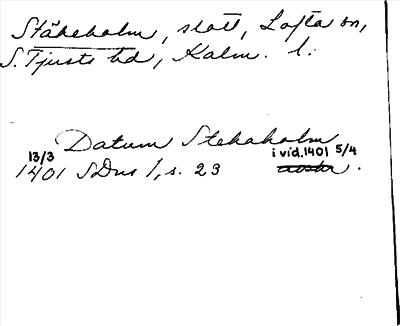 Stäkeholm, slott, Lofta sn,
S. Tjusts hd, Kalm. l.
Datum Stekaholm
13/3 i vid. 1401 5/4
1401 SDns 1, s. 23 avskr.